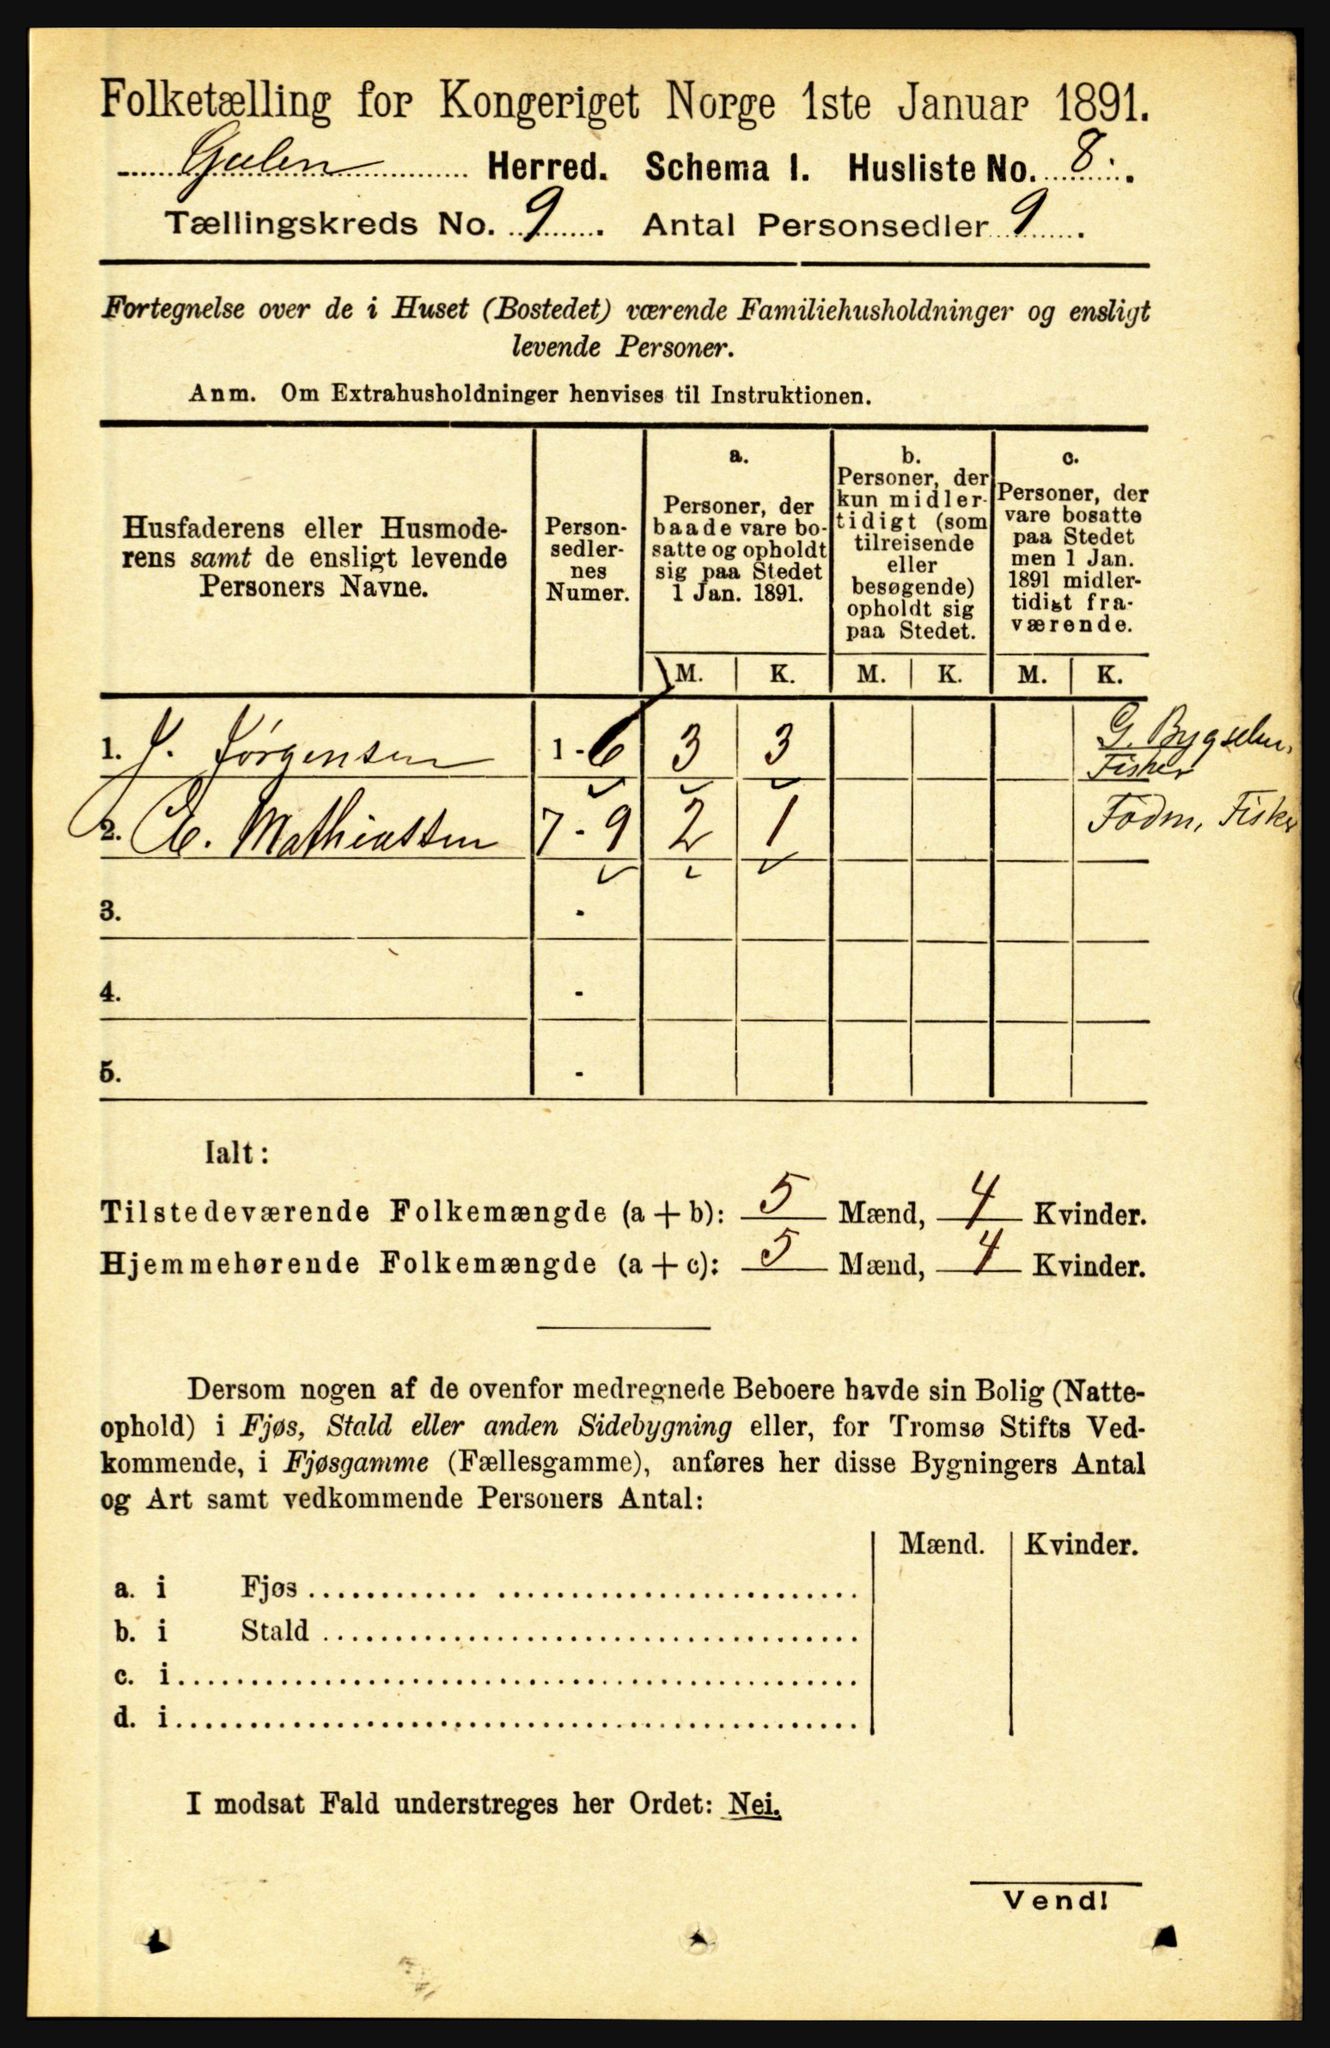 Folketælling for Kongeriget Norge 1ste Januar 1891.
Gulen Herred. Schema I. Husliste No. 8.
Tællingskreds No. 9. Antal Personsedler 9.
Fortegnelse over de i Huset (Bostedet) værende Familiehusholdninger og ensligt
levende Personer.
Anm. Om Extrahusholdninger henvises til Instruktionen.
Husfaderens eller Husmode-
rens samt de ensligt levende
Personers Navne.
Person-
sedler-
nes
Numer.
a.
Personer, der
baade vare bo-
satte og opholdt
sig paa Stedet
1 Jan. 1891.
b.
Personer, der
kun midler-
tidigt (som
tilreisende
eller
besøgende)
opholdt sig
paa Stedet.
c.
Personer, der
vare bosatte
paa Stedet
men 1 Jan.
1891 midler-
tidigt fra-
værende.
M. K. M. K. M. K.
1. J. Jørgensen 1 - 6 3 3 G. Bygselm.
Fisker
2. Chr. Mathiassen 7 - 9 2 1 Fodm, Fisker
3. -
4. -
5. -
Ialt:
Tilstedeværende Folkemængde (a + b): 5 Mænd, 4 Kvinder.
Hjemmehørende Folkemængde (a + c): 5 Mænd, 4 Kvinder.
Dersom nogen af de ovenfor medregnede Beboere havde sin Bolig (Natte-
ophold) i Fjøs, Stald eller anden Sidebygning eller, for Tromsø Stifts Ved-
kommende, i Fjøsgamme (Fællesgamme), anføres her disse Bygningers Antal
og Art samt vedkommende Personers Antal:
Mænd. Kvinder.
a. i Fjøs
b. i Stald
c. i
d. i
I modsat Fald understreges her Ordet: Nei.
Vend!